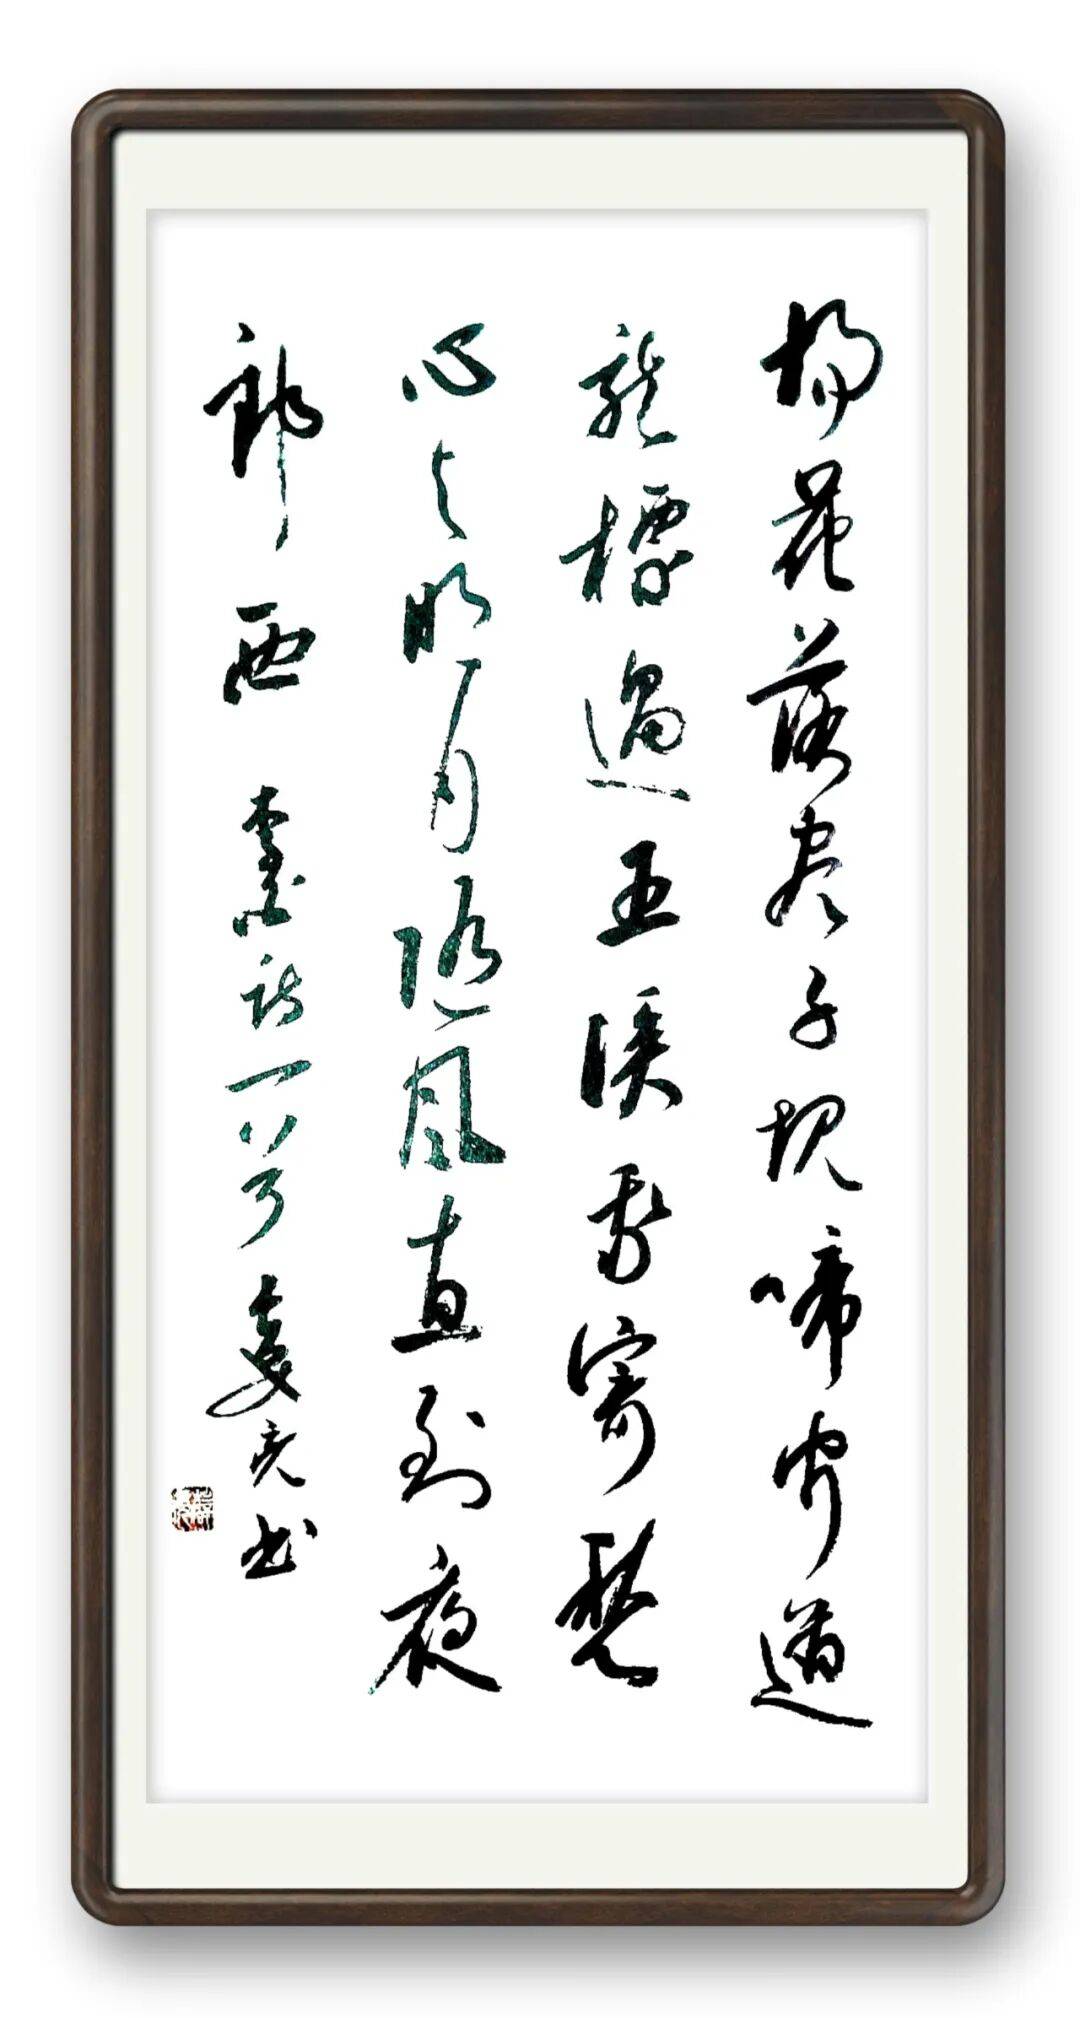 杨花落尽子规啼闻道
龙标過五溪我寄愁
心与明月随风直到夜
郎西 李白诗一首 亮书